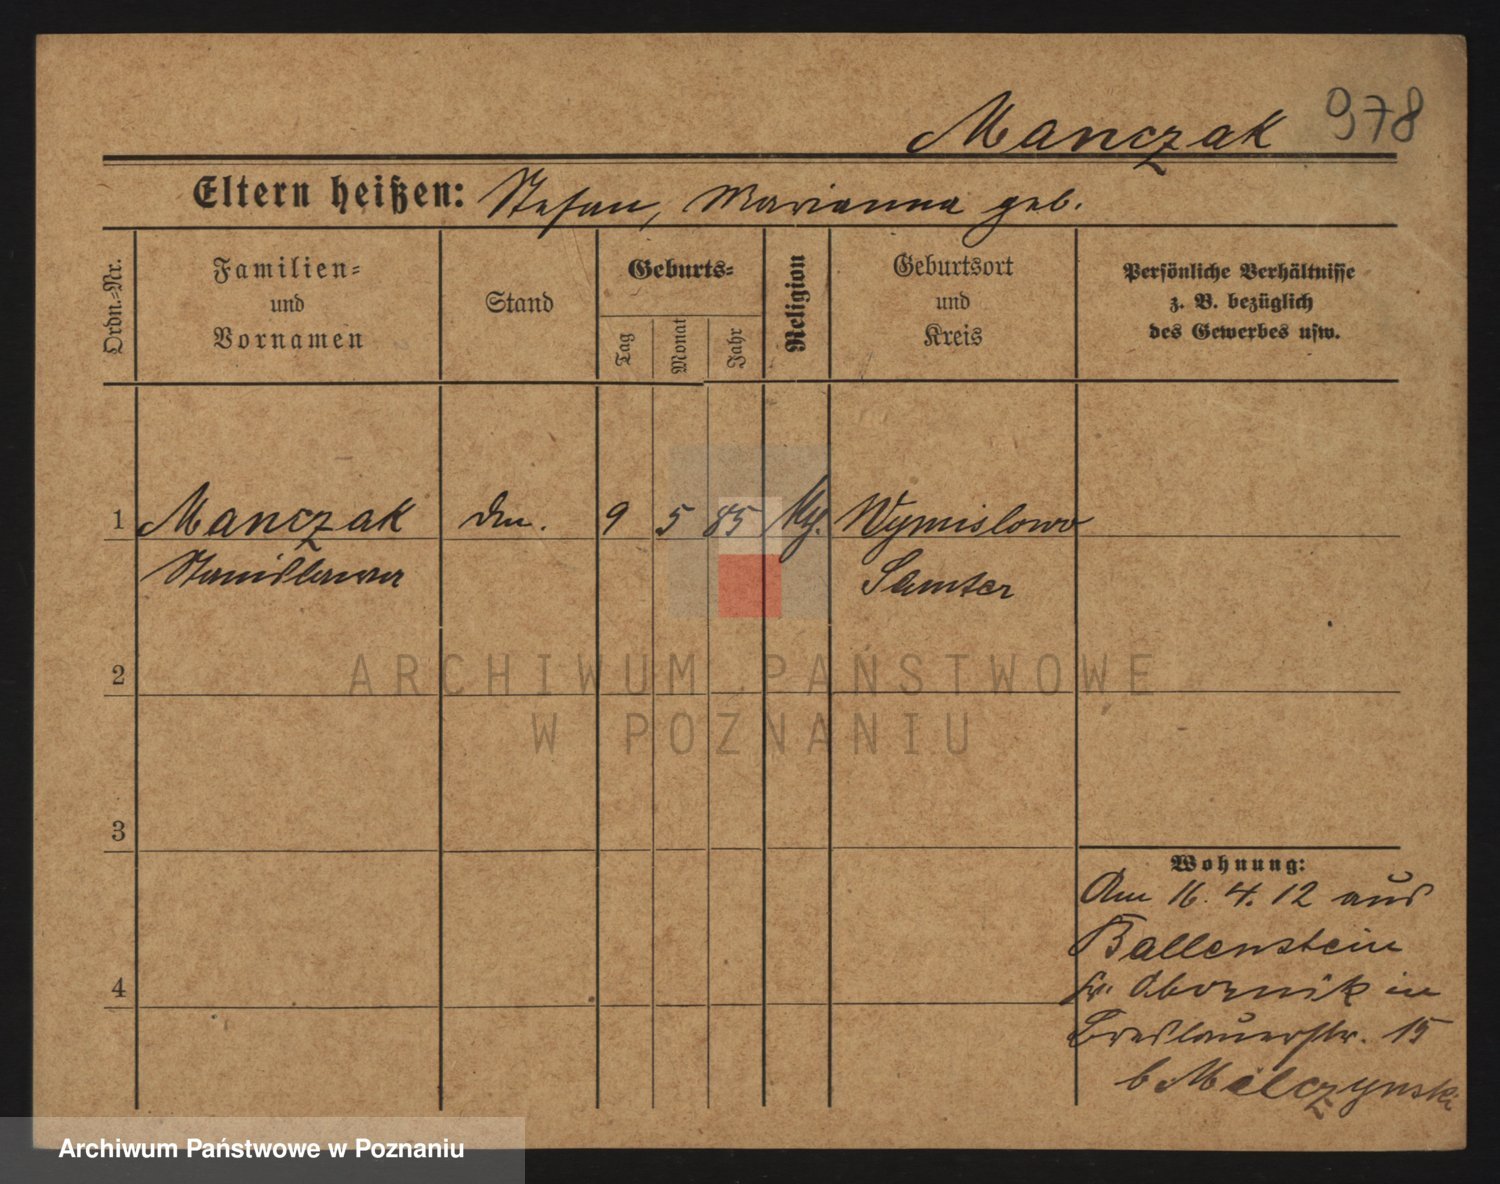 Manczak 978
Eltern heißen: Stefan, Marianna geb.
Ordn.-Nr.
Familien-
und
Vornamen
Stand
Geburts-
Tag
Monat
Jahr
Religion
Geburtsort
und
Kreis
Persönliche Verhältnisse
z. B. bezüglich
des Gewerbes usw.
1 Manczak 9 5 85 Wymislowo
Stanislawa Samter
2
3
4
Wohnung:
Am 16. 4. 12 aus
Ballenstein
Kr. Obornik in
Breslauerstr. 15
b Milczynski
ARCHIWUM PAŃSTWOWE
W POZNANIU
Archiwum Państwowe w Poznaniu